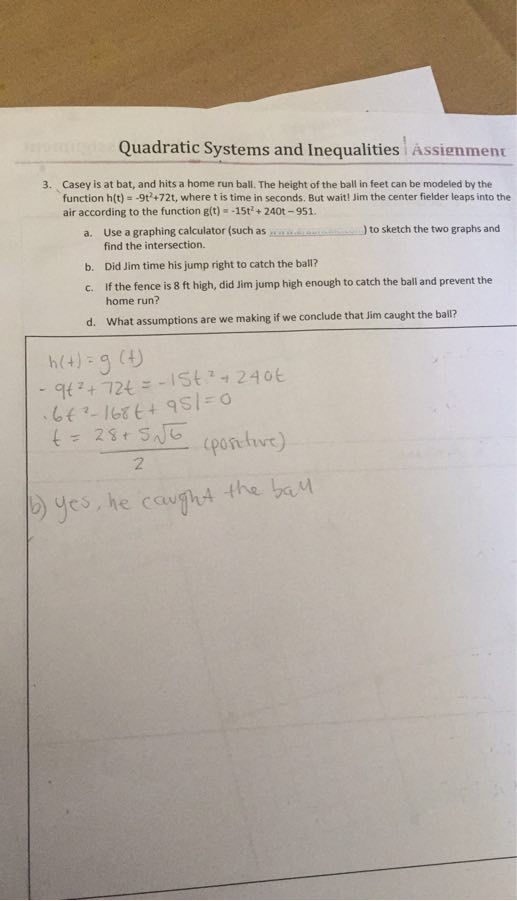 Quadratic Systems and Inequalities Assignment
3. Casey is at bat, and hits a home run ball. The height of the ball in feet can be modeled by the
function h(t) = -9t²+72t, where t is time in seconds. But wait! Jim the center fielder leaps into the
air according to the function g(t) = -15t² + 240t – 951.
a. Use a graphing calculator (such as ) to sketch the two graphs and
find the intersection.
b. Did Jim time his jump right to catch the ball?
c. If the fence is 8 ft high, did Jim jump high enough to catch the ball and prevent the
home run?
d. What assumptions are we making if we conclude that Jim caught the ball?
h(t) = g(t)
- 9t² + 72t = -15t² + 240t
6t² - 168t + 951 = 0
t = 28 + 5√6 (positive)
2
b) yes, he caught the ball